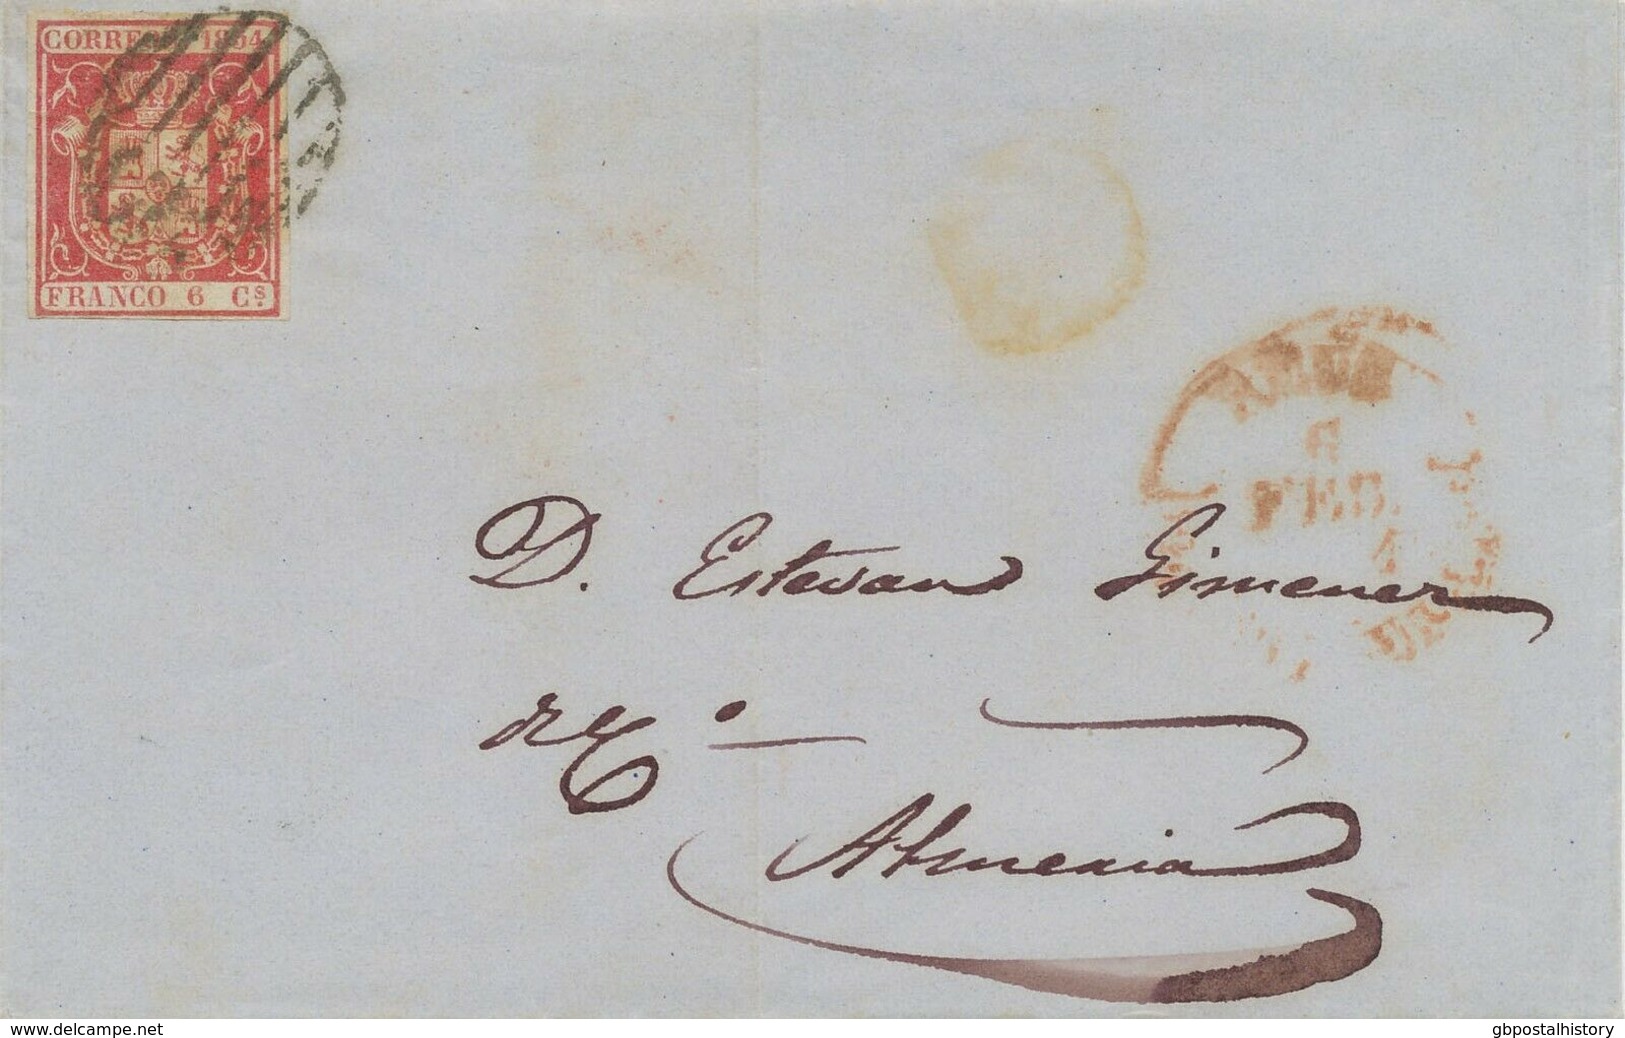 CORREOS 1854
FRANCO 6 Cs.
6
FEB.
D. Estevan Gimenez
Almeria
www.delcampe.net
gbpostalhistory